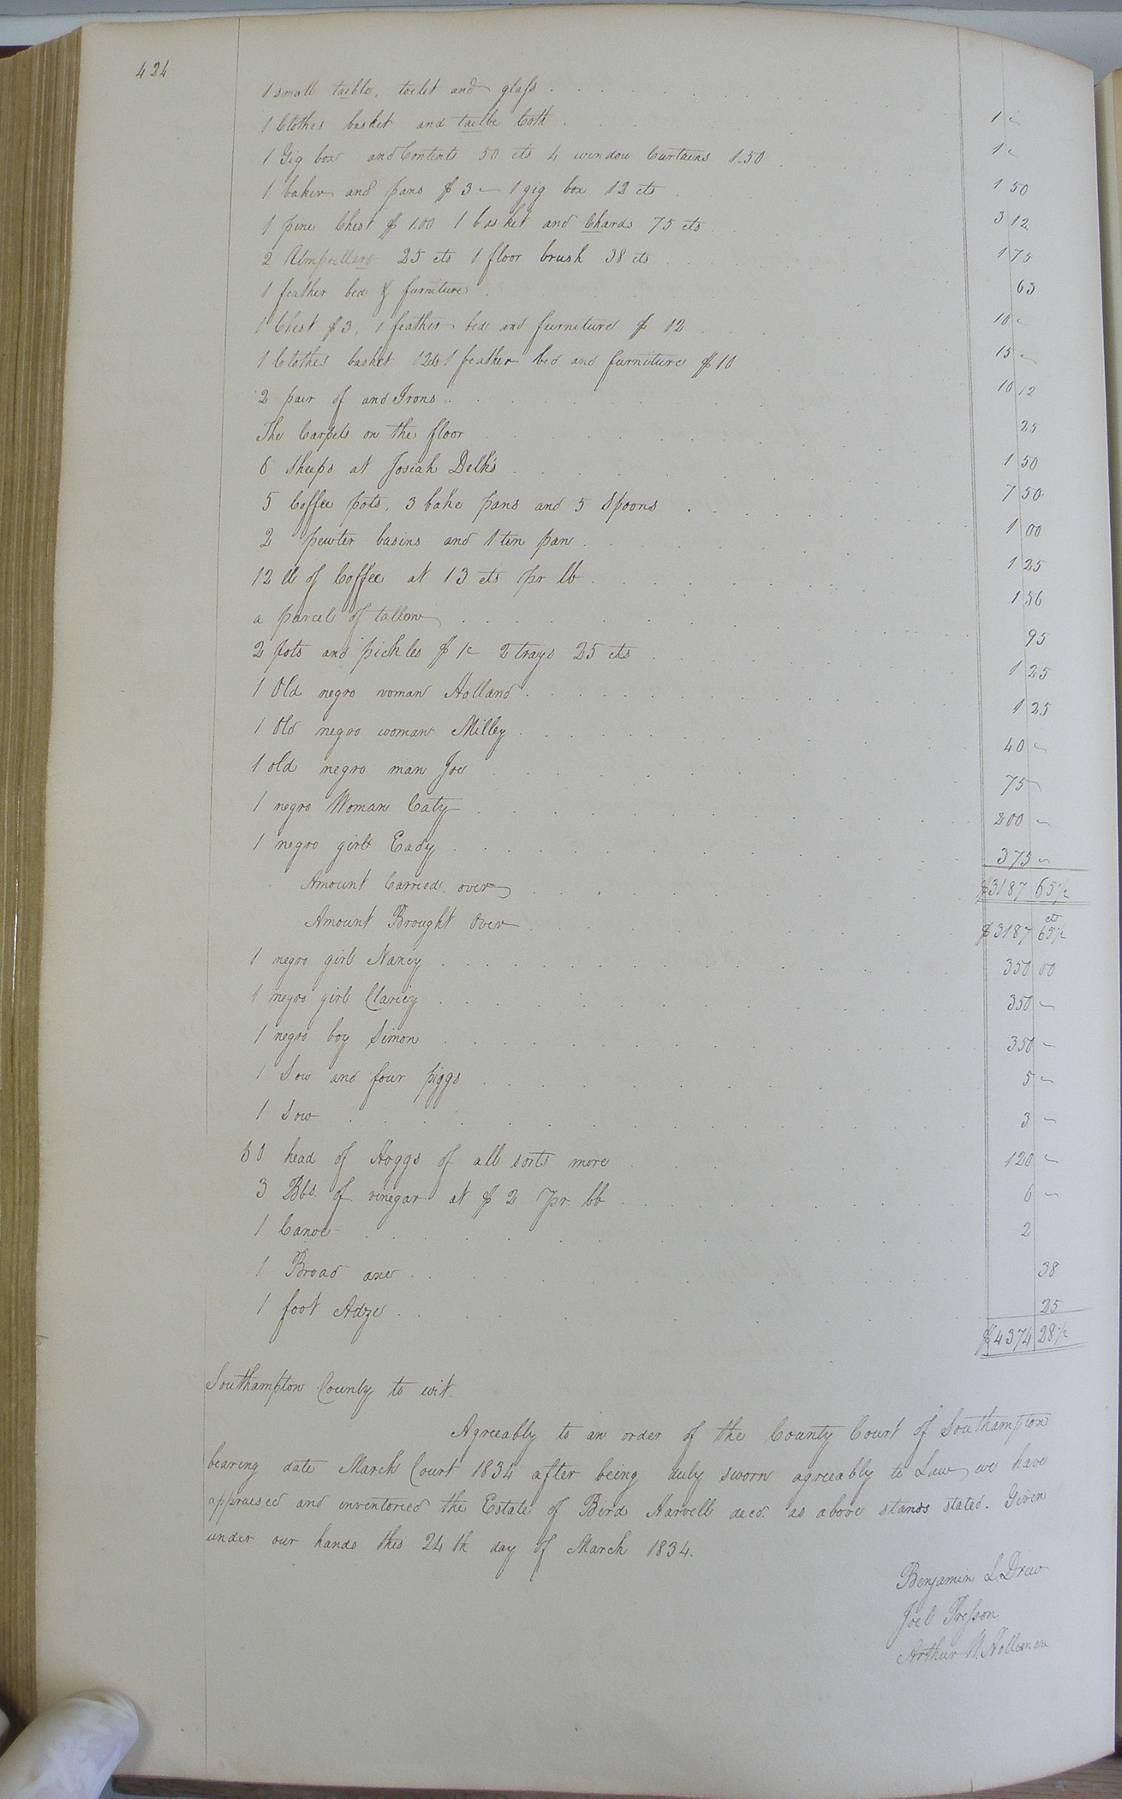 424
1 small table, toilet and glass . . . 1 "
1 Clothes basket and table Coth . . . 1 "
1 Gig box and Contents 50 cts 4 window Curtains 1.50 1 50
1 baker and pans $ 3 " 1 gig box 12 cts 3 12
1 pine Chest $ 1.00 1 basket and Chards 75 cts 1 75
2 25 cts 1 floor brush 38 cts 63
1 feather bed & furniture 10 "
1 Chest $3, 1 feather bed and furniture $ 12 15 "
1 Clothes basket 12cts 1 feather bed and furniture $10 10 12
2 pair of and Irons 25
The Carpets on the floor 1 50
6 Sheeps at Josiah Delk's 7 50
5 Coffee pots, 3 bake pans and 5 Spoons 1 00
2 pewter basins and 1 ten pan 1 25
12 lb of Coffee at 13 cts pr lb 1 56
a parcel of tallow 95
2 pots and pickles $ 1 " 2 trays 25 cts 1 25
1 Old negro woman Holland 1 25
1 Old negro woman Milley 40 "
1 old negro man Joe 75 "
1 negro Woman Caty 200 "
1 negro girl Eady 375 "
Amount Carried over $3187 65 1/2
Amount Brought Over $3187 cts 65 1/2
1 negro girl Nancy 350 00
1 negro girl Claricy 350 "
1 negro boy Simon 350 "
1 Sow and four piggs 5 "
1 Sow 3 "
30 head of Hoggs of all sorts more 120 "
3 Bbs. of vinegar at $ 2 pr. bb 6 "
1 Canoe 2
1 Broad axe 38
1 foot Adze 25
$4374 28 1/2
Southampton County to wit
Agreeably to an order of the County Court of Southampton
bearing date March Court 1834 after being duly sworn agreeably to Law we have
appraised and inventoried the Estate of Bird Harvell decd. as above stands stated. Given
under our hands this 24th day of March 1834.
Benjamin L. Drew
Joel Presson
Arthur W. Holleman